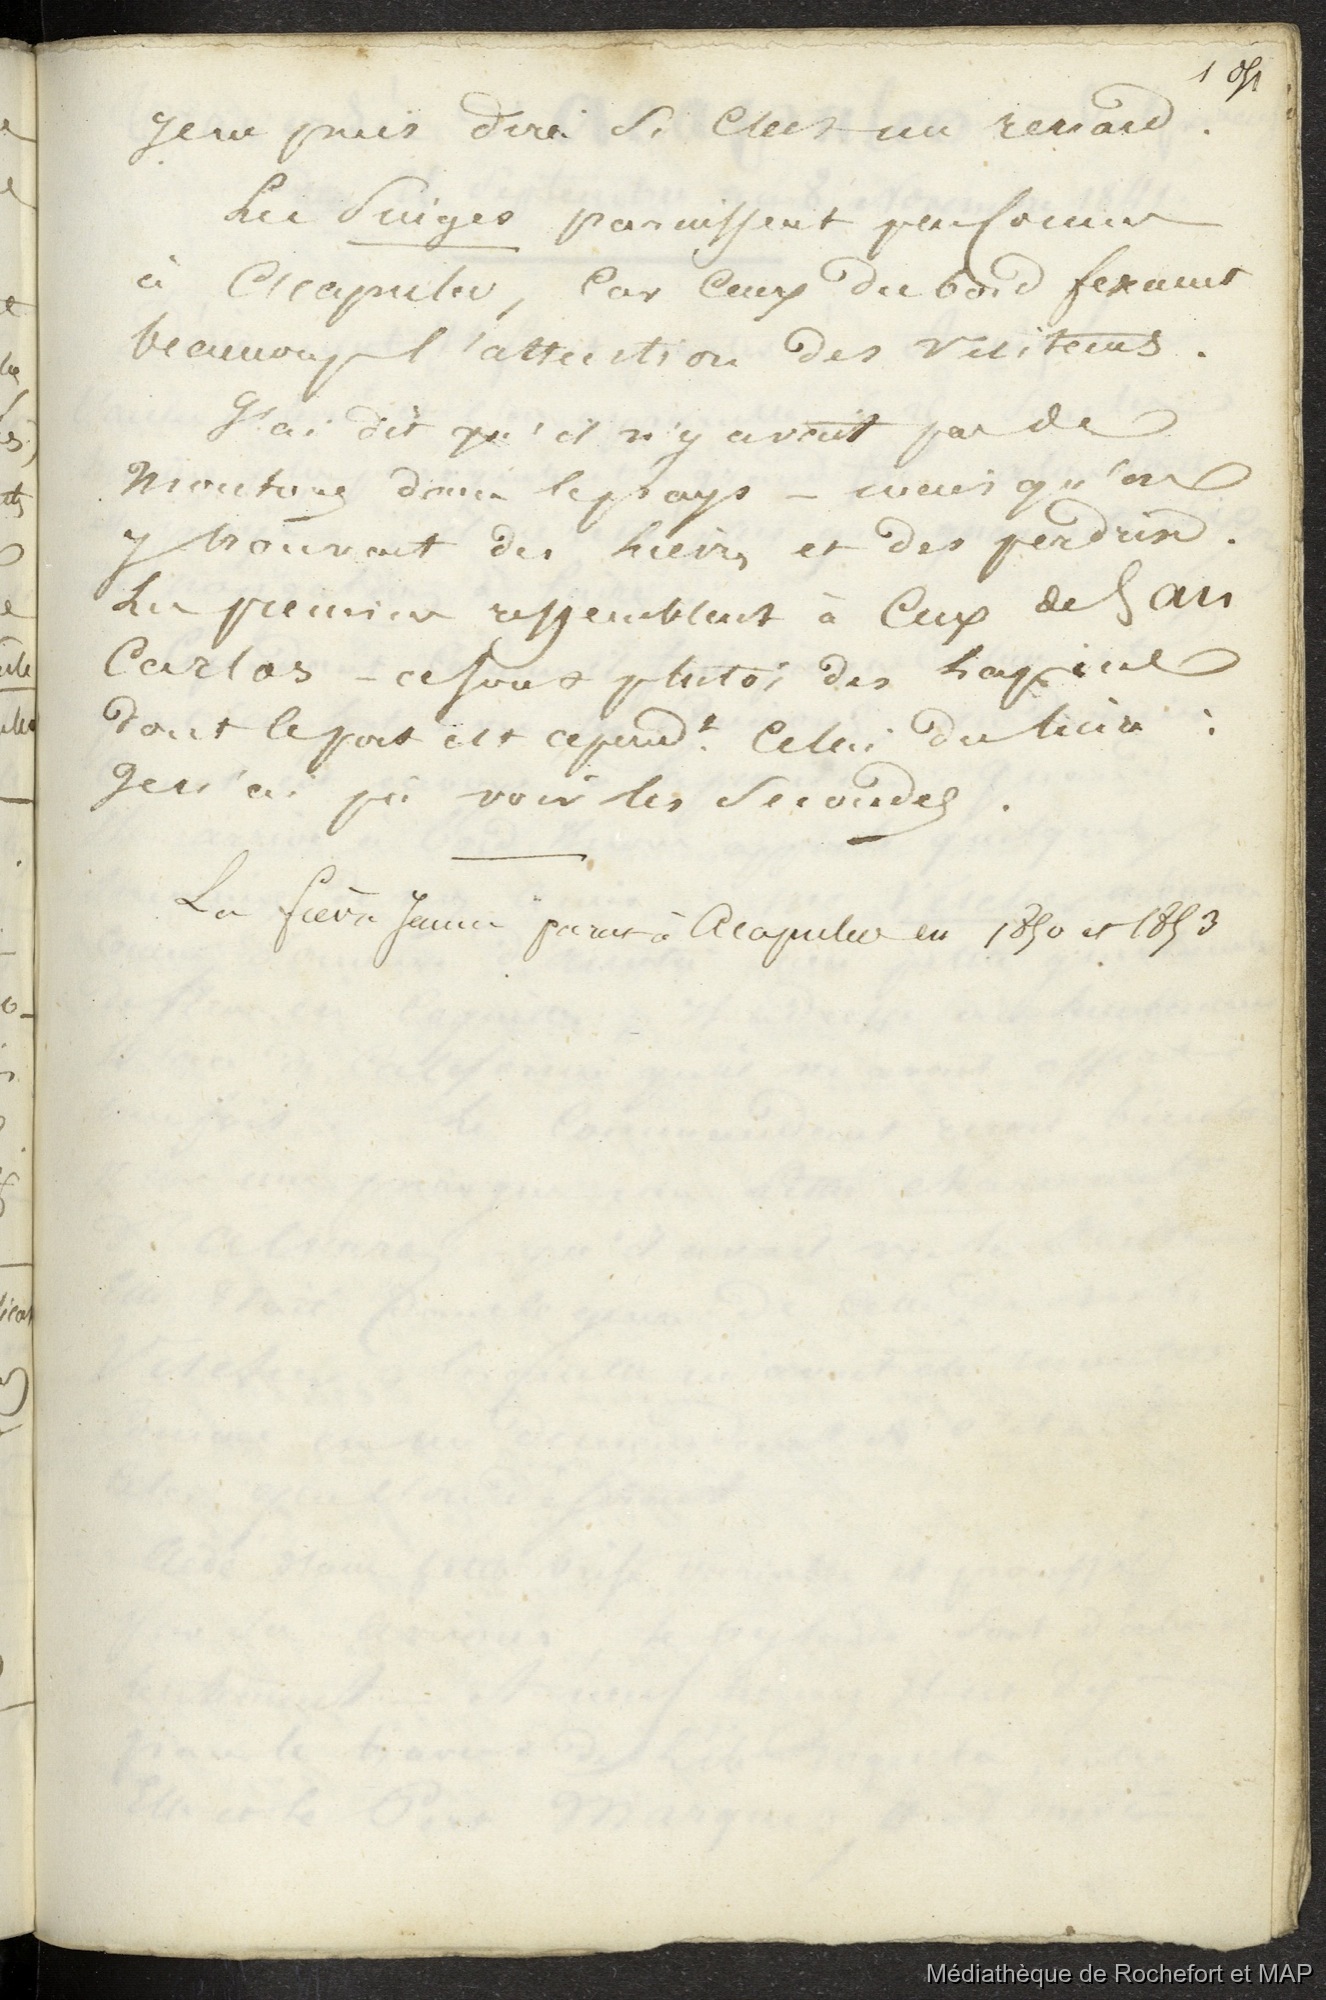 je ne puis dire si c'est un renard.
Les Singes paraissent peu connus
à Acapulco, car ceux du bord fixaient
beaucoup l'attention des visiteurs.
J'ai dit qu'il n'y avait pas de
moutons dans le pays – mais qu'on
y trouvait des lièvres et des perdrix.
Les premiers ressemblent à ceux de San
Carlos – ce sont plutôt des lapins
dont le port est cepend.t celui du lièvre :
Je n'ai pû voir les secondes.
La fièvre jaune parut à Acapulco en 1850 et 1853
Médiathèque de Rochefort et MAP